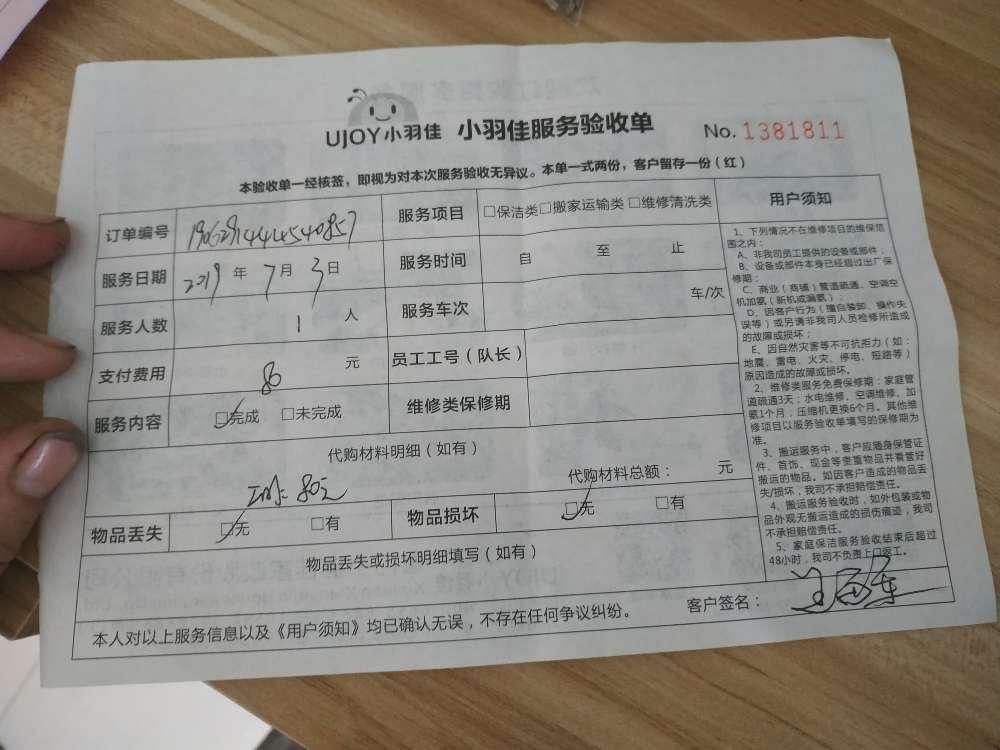 UJOY小羽佳 小羽佳服务验收单 No. 1381811
本验收单一经核签，即视为对本次服务验收无异议。本单一式两份，客户留存一份（红）
订单编号 190629144454 0857
服务项目 □保洁类□搬家运输类□维修清洗类
服务日期 2019 年 7 月 3 日
服务时间 自 至 止
服务人数 1 人
服务车次 车/次
支付费用 80 元
员工工号（队长）
服务内容 □完成 □未完成
维修类保修期
代购材料明细（如有）
80元
代购材料总额： 元
物品丢失 □无 □有
物品损坏 □无 □有
物品丢失或损坏明细填写（如有）
用户须知
1、下列情况不在维修项目的维保范
围之内：
A、非我司员工提供的设备或部件；
B、设备或部件本身已经超过出厂保
修期；
C、商业（商铺）管道疏通、空调空
机加氨（新机或漏氨）；
D、因客户行为（擅自装卸、操作失
误等）或另请非我司人员检修所造成
的故障或损坏；
E、因自然灾害等不可抗拒力（如：
地震、雷电、火灾、停电、短路等）
原因造成的故障或损坏。
2、维修类服务免费保修期：家庭管
道疏通3天；水电维修、空调维修、加
氨1个月；压缩机更换6个月。其他维
修项目以服务验收单填写的保修期为
准。
3、搬运服务中，客户应随身保管证
件、首饰、现金等贵重物品并看管好
搬运的物品。如因客户造成的物品丢
失/损坏，我司不承担赔偿责任。
4、搬运服务验收时，如外包装或物
品外观无搬运造成的损伤痕迹，我司
不承担赔偿责任。
5、家庭保洁服务验收结束后超过
48小时，我司不负责上门返工。
本人对以上服务信息以及《用户须知》均已确认无误，不存在任何争议纠纷。 客户签名：